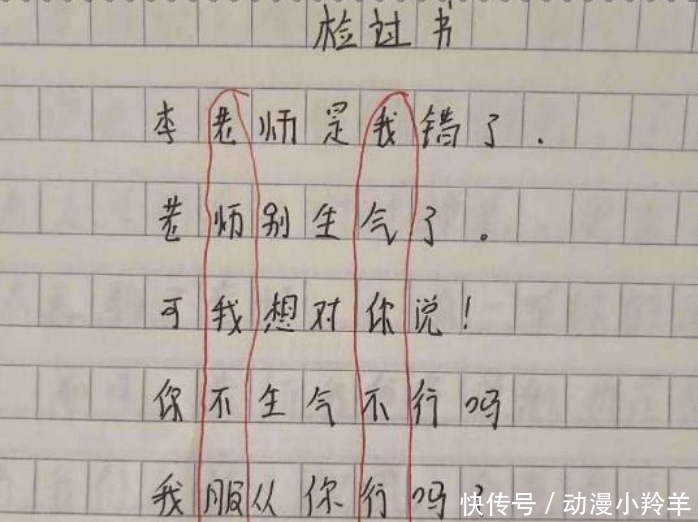 检过书
李老师是我错了.
老师别生气了。
可我想对你说!
你不生气不行吗
我服从你行吗?
快传号/动漫小羚羊